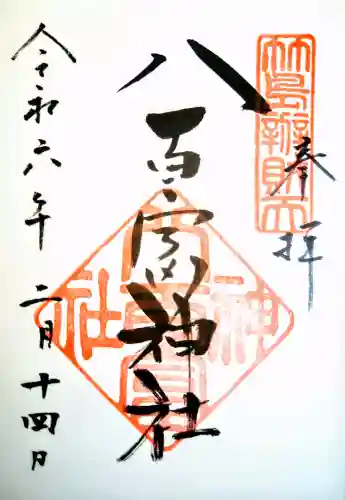 奉拝
竹島辨財天
八百富神社
八百富神社
令和六年二月十四日